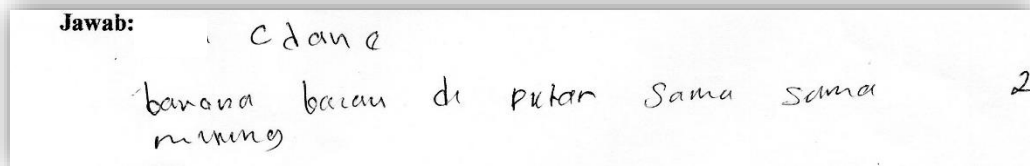 Jawab:
C dan e
barana baiau di putar sama sama 2
miring